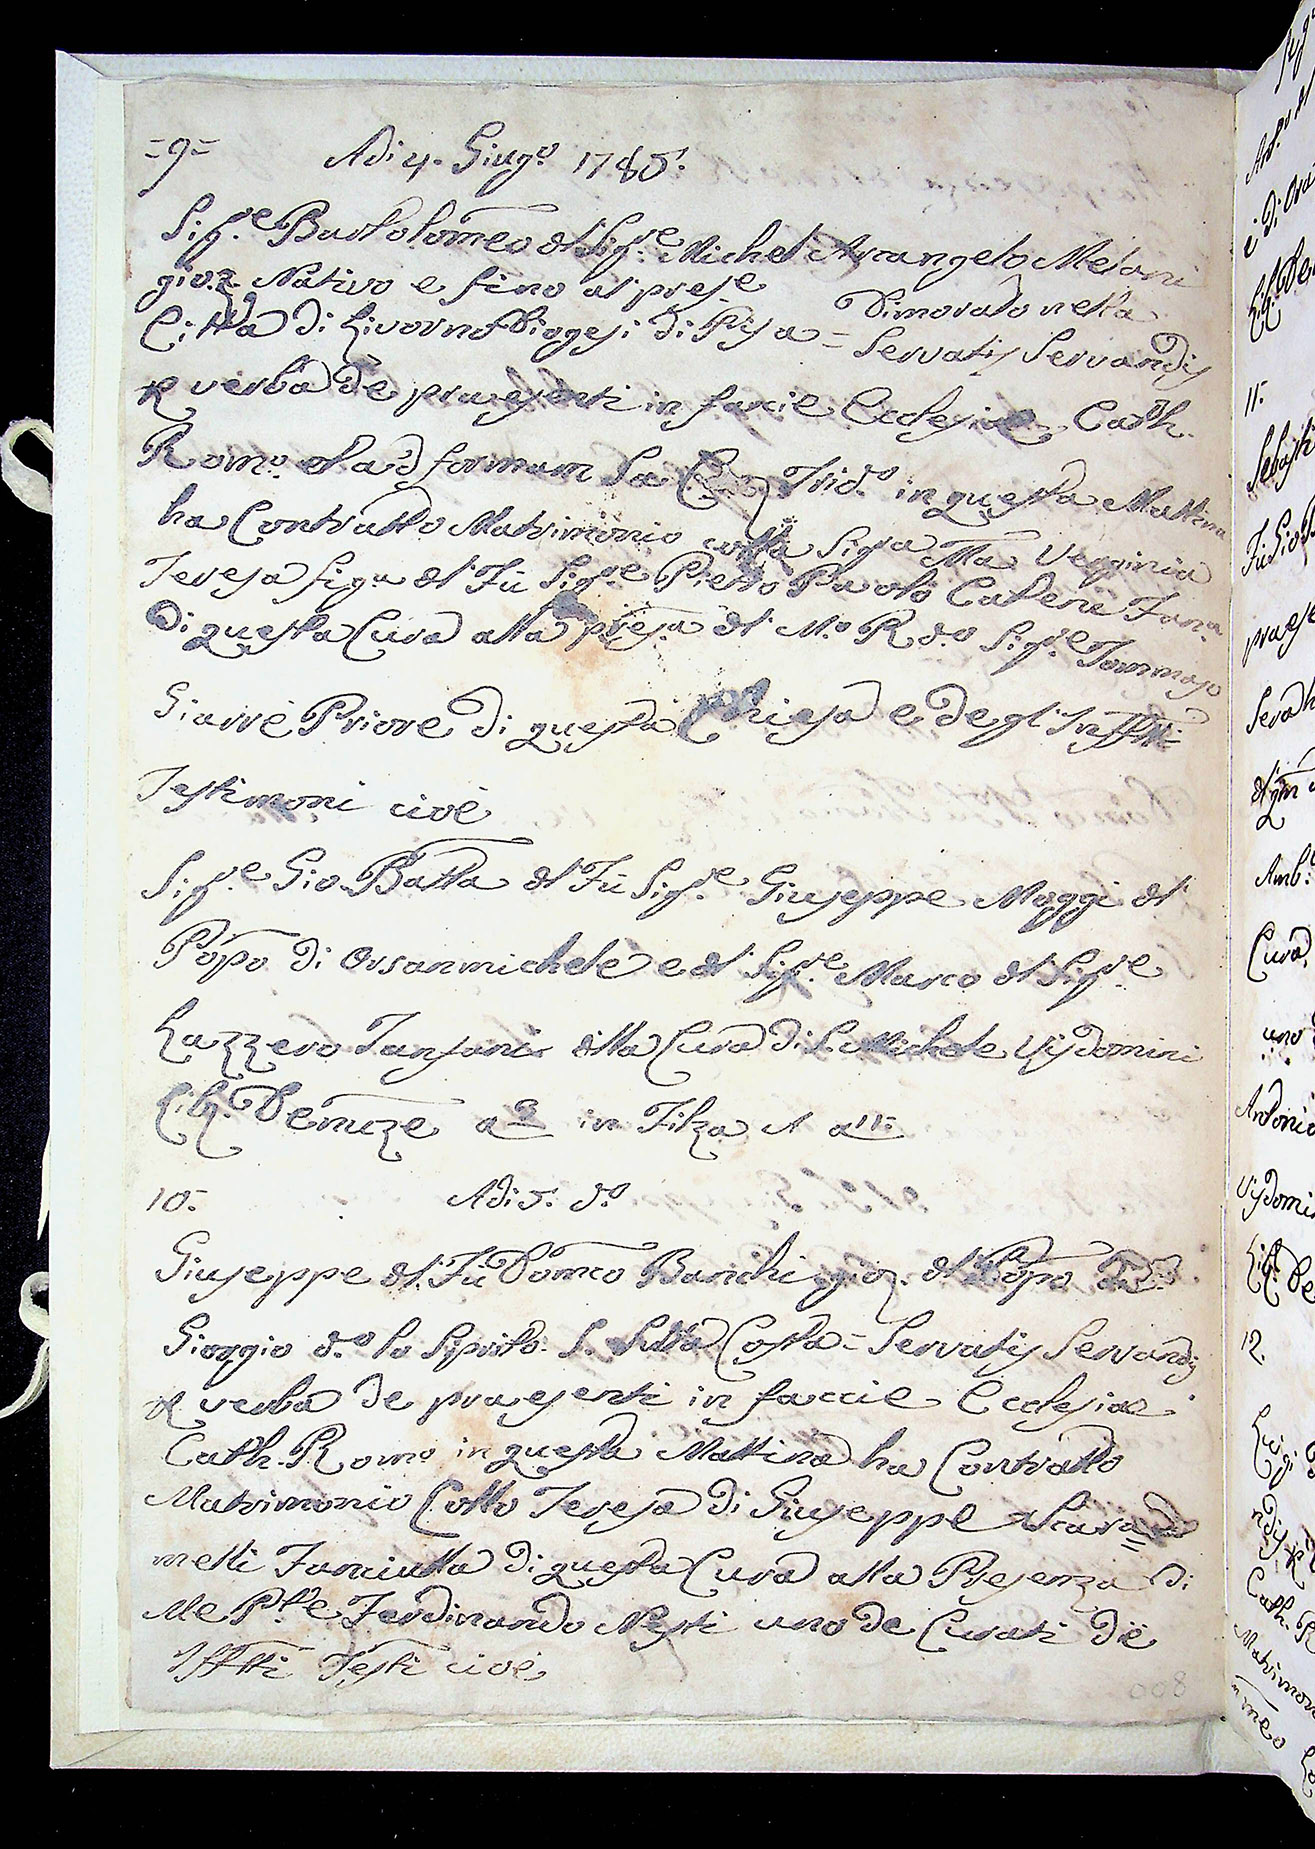 =9= Adi 4. Giug.o 1785.
Sig.re Bartolomeo del Sig.re Michel Arcangelo Melani
giov.e Nativo e fino al pres.e Dimorato nella
Città di Livorno Diogesi di Pisa = Servatis Servandis
per verba de praesenti in faccie Ecclesiae Cath.
Rom.o et ad formam Sac. Trid.o in questa Mattina
ha Contratto Matrimonio colla Sig.ra M.a Verginia
Teresa fig.a del Fù Sig.re Pietro Paolo Cateni Fan.a
di questa Cura alla pres.a del M.o R.do Sig.re Tommaso
Giarrè Priore di questa Chiesa e degl' Inffritti
Testimoni cioè
Sig.re Gio. Batta del Fù Sig.re Giuseppe Maggi del
Popo di Orsanmichele e del Sig.re Marco del Sig.re
Lazzero Tanfani della Cura di S. Michele Visdomini
Lib. Denuze a 3 in Filza A a 11
10. Adi 5. d.o
Giuseppe del Fù Domco Banchi gio. del Popo di S.
Giorgio d.o lo Spirito S. sulla Costa = Servatis Servandis
per verba de praesenti in faccie Ecclesiae
Cath. Rom.o in questa Mattina ha Contratto
Matrimonio Collo Teresa di Giuseppe Scara=
melli Fanciulla di questa Cura alla Presenza di
Me P.te Ferdinando Nesti uno de Curati de
Iffritti Testi cioè
008
11.
12.